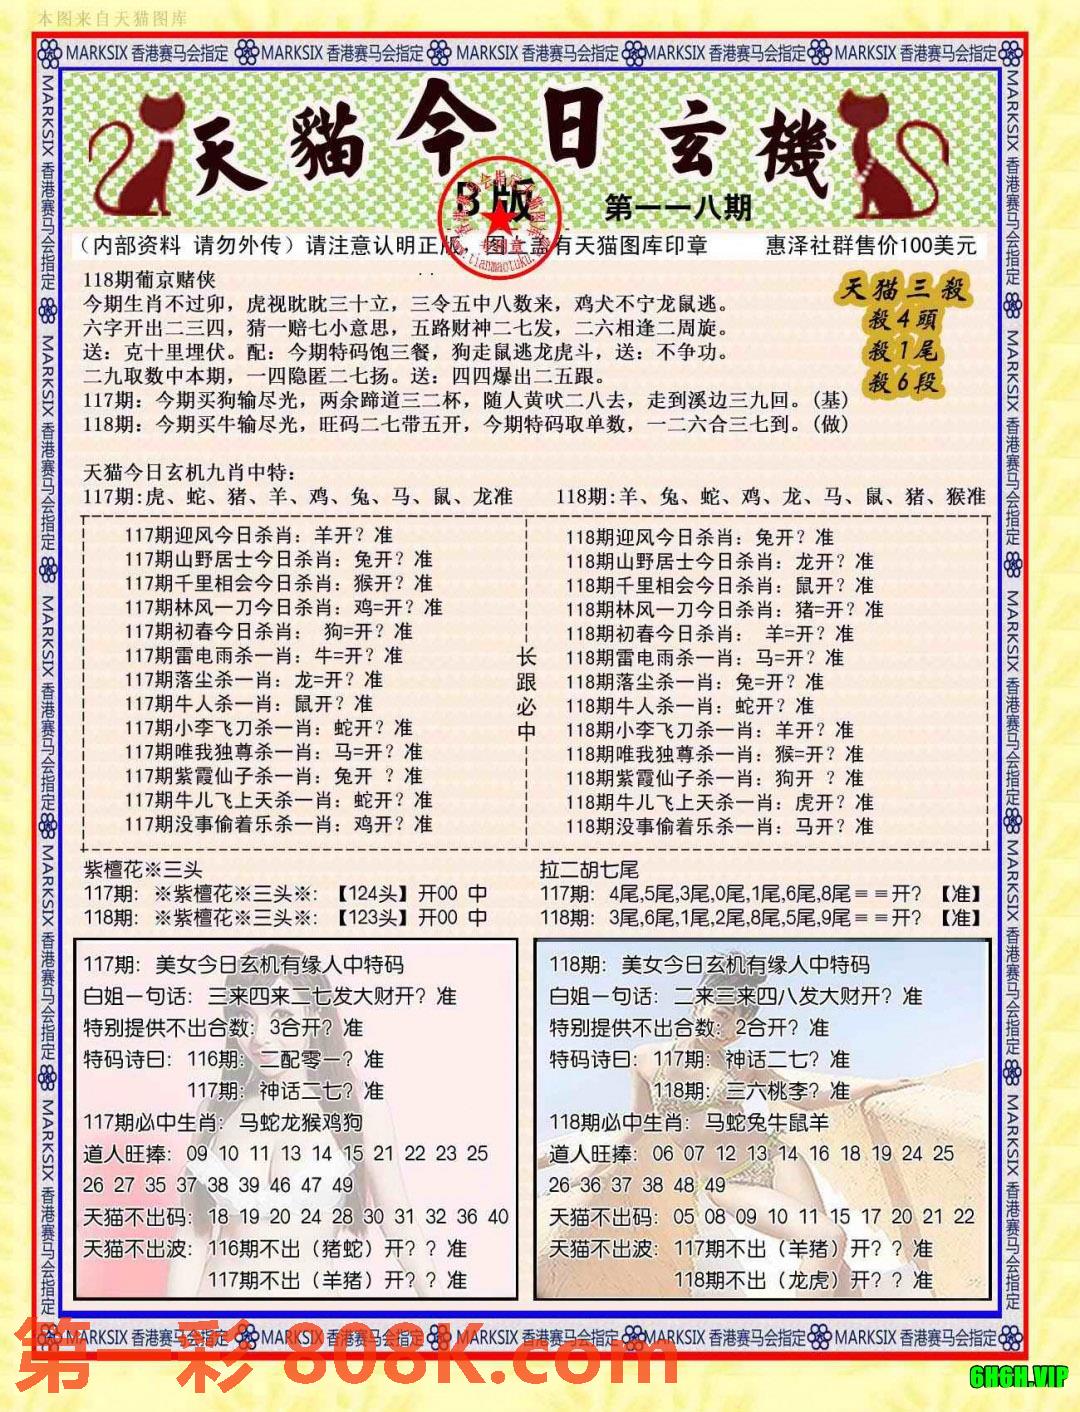 本图来自天猫图库
MARKSIX 香港赛马会指定 MARKSIX 香港赛马会指定 MARKSIX 香港赛马会指定 MARKSIX 香港赛马会指定 MARKSIX 香港赛马会指定
天貓今日玄機
B版
第一一八期
(内部资料 请勿外传)请注意认明正版,图上盖有天猫图库印章 惠泽社群售价100美元
www.tianmaotuku.com
118期葡京赌侠
今期生肖不过卯，虎视眈眈三十立，三令五中八数来，鸡犬不宁龙鼠逃。
六字开出二三四，猜一赔七小意思，五路财神二七发，二六相逢二周旋。
送：克十里埋伏。配：今期特码饱三餐，狗走鼠逃龙虎斗，送：不争功。
二九取数中本期，一四隐匿二七扬。送：四四爆出二五跟。
117期：今期买狗输尽光，两余蹄道三二杯，随人黄吠二八去，走到溪边三九回。(基)
118期：今期买牛输尽光，旺码二七带五开，今期特码取单数，一二六合三七到。(做)
天猫三殺
殺4頭
殺1尾
殺6段
天猫今日玄机九肖中特：
117期:虎、蛇、猪、羊、鸡、兔、马、鼠、龙准
118期:羊、兔、蛇、鸡、龙、马、鼠、猪、猴准
117期迎风今日杀肖：羊开？准
117期山野居士今日杀肖：兔开？准
117期千里相会今日杀肖：猴开？准
117期林风一刀今日杀肖：鸡=开？准
117期初春今日杀肖： 狗=开？准
117期雷电雨杀一肖：牛=开？准
117期落尘杀一肖：龙=开？准
117期牛人杀一肖：鼠开？准
117期小李飞刀杀一肖：蛇开？准
117期唯我独尊杀一肖：马=开？准
117期紫霞仙子杀一肖：兔开 ？准
117期牛儿飞上天杀一肖：蛇开？准
117期没事偷着乐杀一肖：鸡开？准
长跟必中
118期迎风今日杀肖：兔开？准
118期山野居士今日杀肖：龙开？准
118期千里相会今日杀肖：鼠开？准
118期林风一刀今日杀肖：猪=开？准
118期初春今日杀肖： 羊=开？准
118期雷电雨杀一肖：马=开？准
118期落尘杀一肖：兔=开？准
118期牛人杀一肖：蛇开？准
118期小李飞刀杀一肖：羊开？准
118期唯我独尊杀一肖：猴=开？准
118期紫霞仙子杀一肖：狗开 ？准
118期牛儿飞上天杀一肖：虎开？准
118期没事偷着乐杀一肖：马开？准
紫檀花※三头
117期：※紫檀花※三头※：【124头】开00 中
118期：※紫檀花※三头※：【123头】开00 中
拉二胡七尾
117期：4尾,5尾,3尾,0尾,1尾,6尾,8尾==开？【准】
118期：3尾,6尾,1尾,2尾,8尾,5尾,9尾==开？【准】
117期：美女今日玄机有缘人中特码
白姐一句话：三来四来二七发大财开？准
特别提供不出合数：3合开？准
特码诗曰：116期：二配零一？准
117期：神话二七？准
117期必中生肖：马蛇龙猴鸡狗
道人旺捧：09 10 11 13 14 15 21 22 23 25
26 27 35 37 38 39 46 47 49
天猫不出码：18 19 20 24 28 30 31 32 36 40
天猫不出波：116期不出（猪蛇）开？？准
117期不出（羊猪）开？？准
118期：美女今日玄机有缘人中特码
白姐一句话：二来三来四八发大财开？准
特别提供不出合数：2合开？准
特码诗曰：117期：神话二七？准
118期：三六桃李？准
118期必中生肖：马蛇兔牛鼠羊
道人旺捧：06 07 12 13 14 16 18 19 24 25
26 36 37 38 48 49
天猫不出码：05 08 09 10 11 15 17 20 21 22
天猫不出波：117期不出（羊猪）开？？准
118期不出（龙虎）开？？准
MARKSIX 香港赛马会指定 MARKSIX 香港赛马会指定 MARKSIX 香港赛马会指定 MARKSIX 香港赛马会指定 MARKSIX 香港赛马会指定
第一彩 808K.com
6HGH.VIP